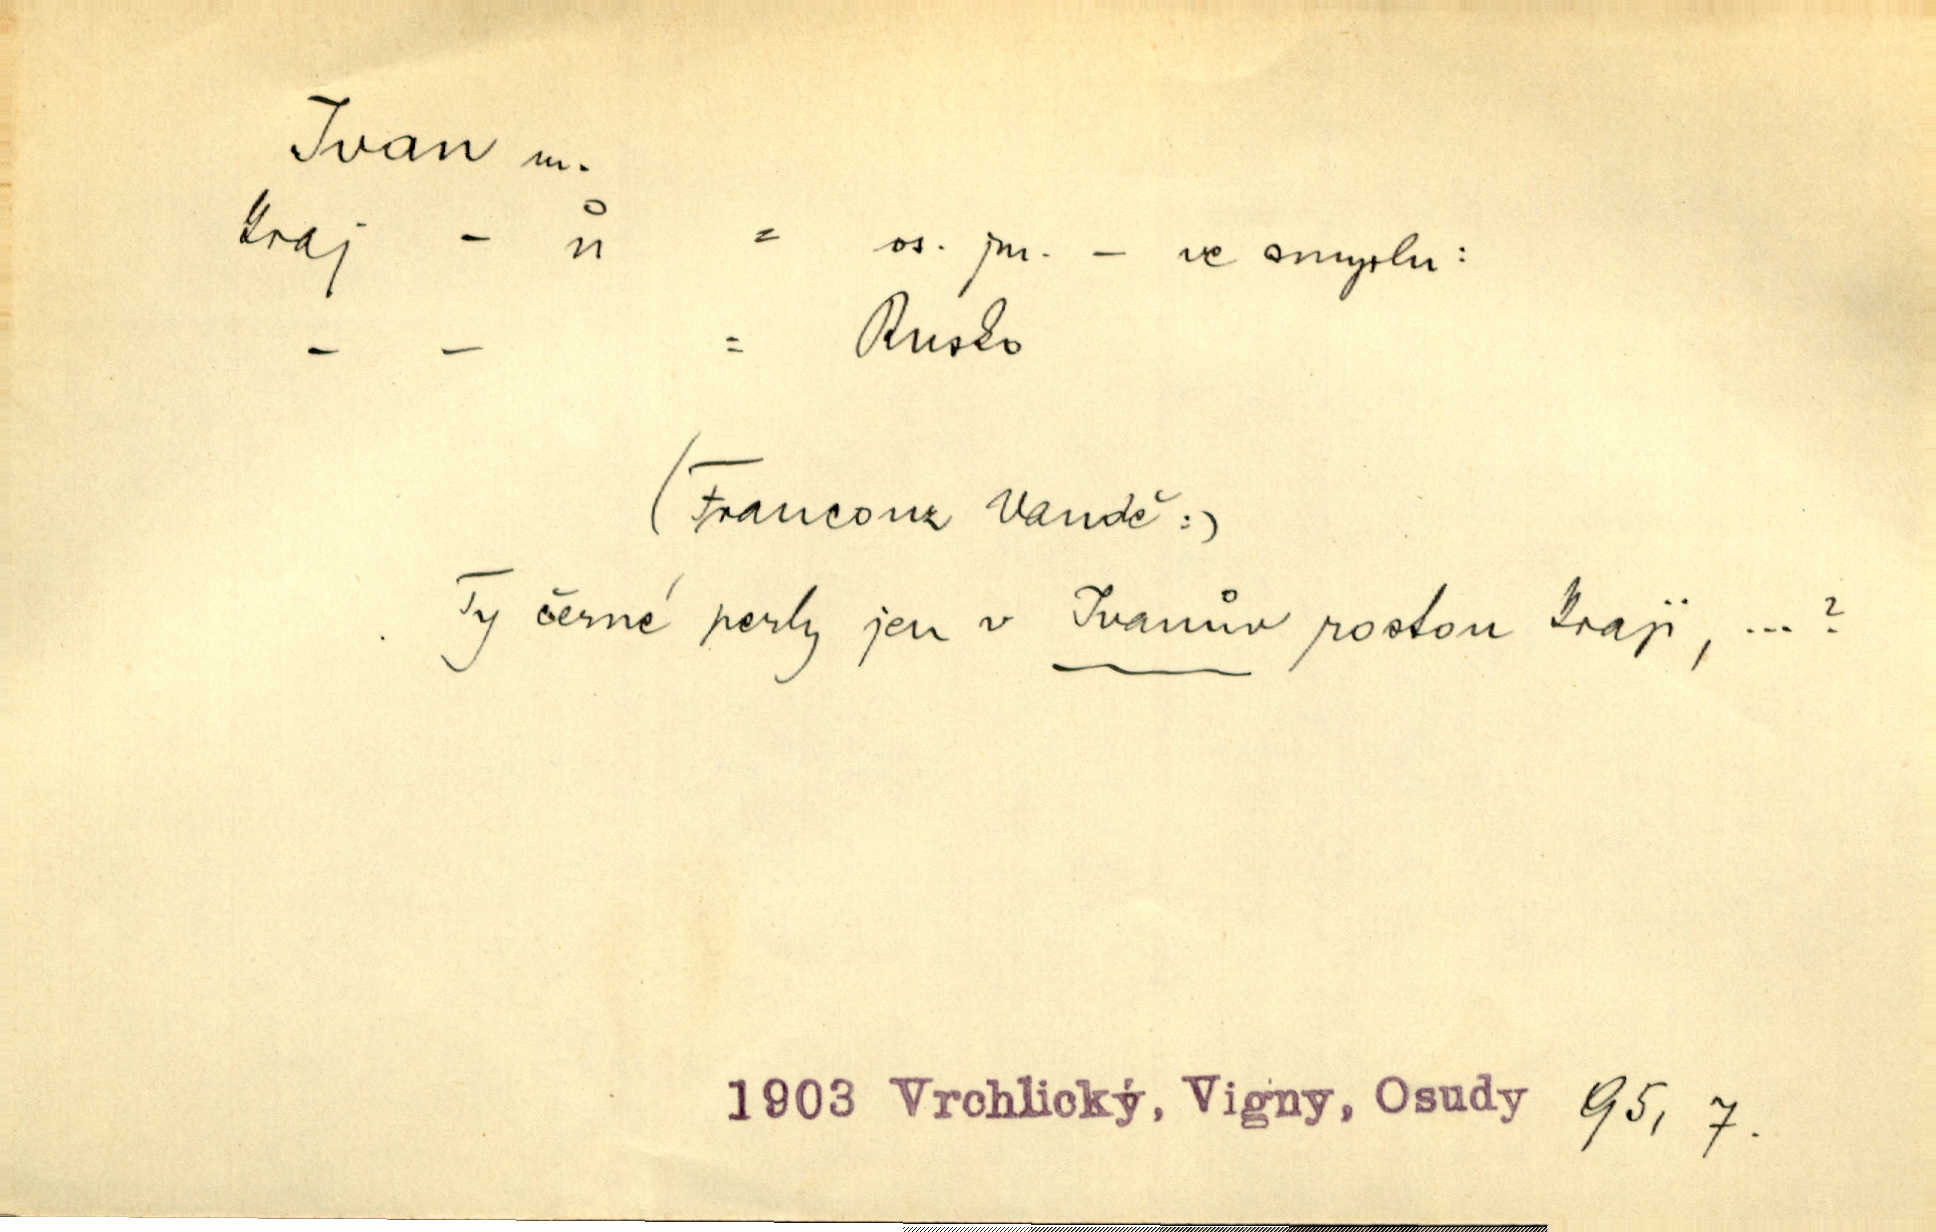 Ivan m.
Kraj - ů = os. jm. - ve smyslu:
- - = Rusko
(Francouz Vandě:)
Ty černé perly jen v Ivanův rostou kraji, ... ?
1903 Vrchlický, Vigny, Osudy 95, 7.